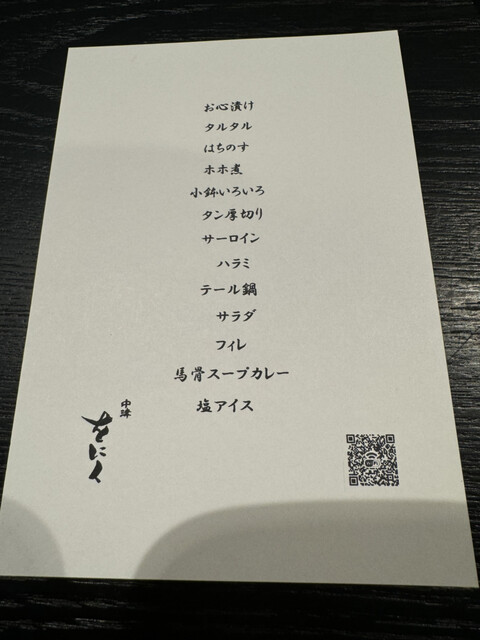 お心漬け
タルタル
はちのす
ホホ煮
小鉢いろいろ
タン厚切り
サーロイン
ハラミ
テール鍋
サラダ
フィレ
馬骨スープカレー
塩アイス
中津
をにく